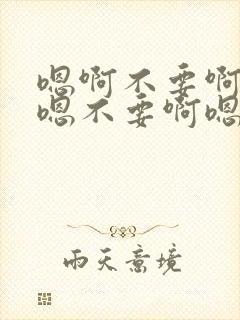 嗯啊不要啊
嗯不要啊嗯
雨天意境